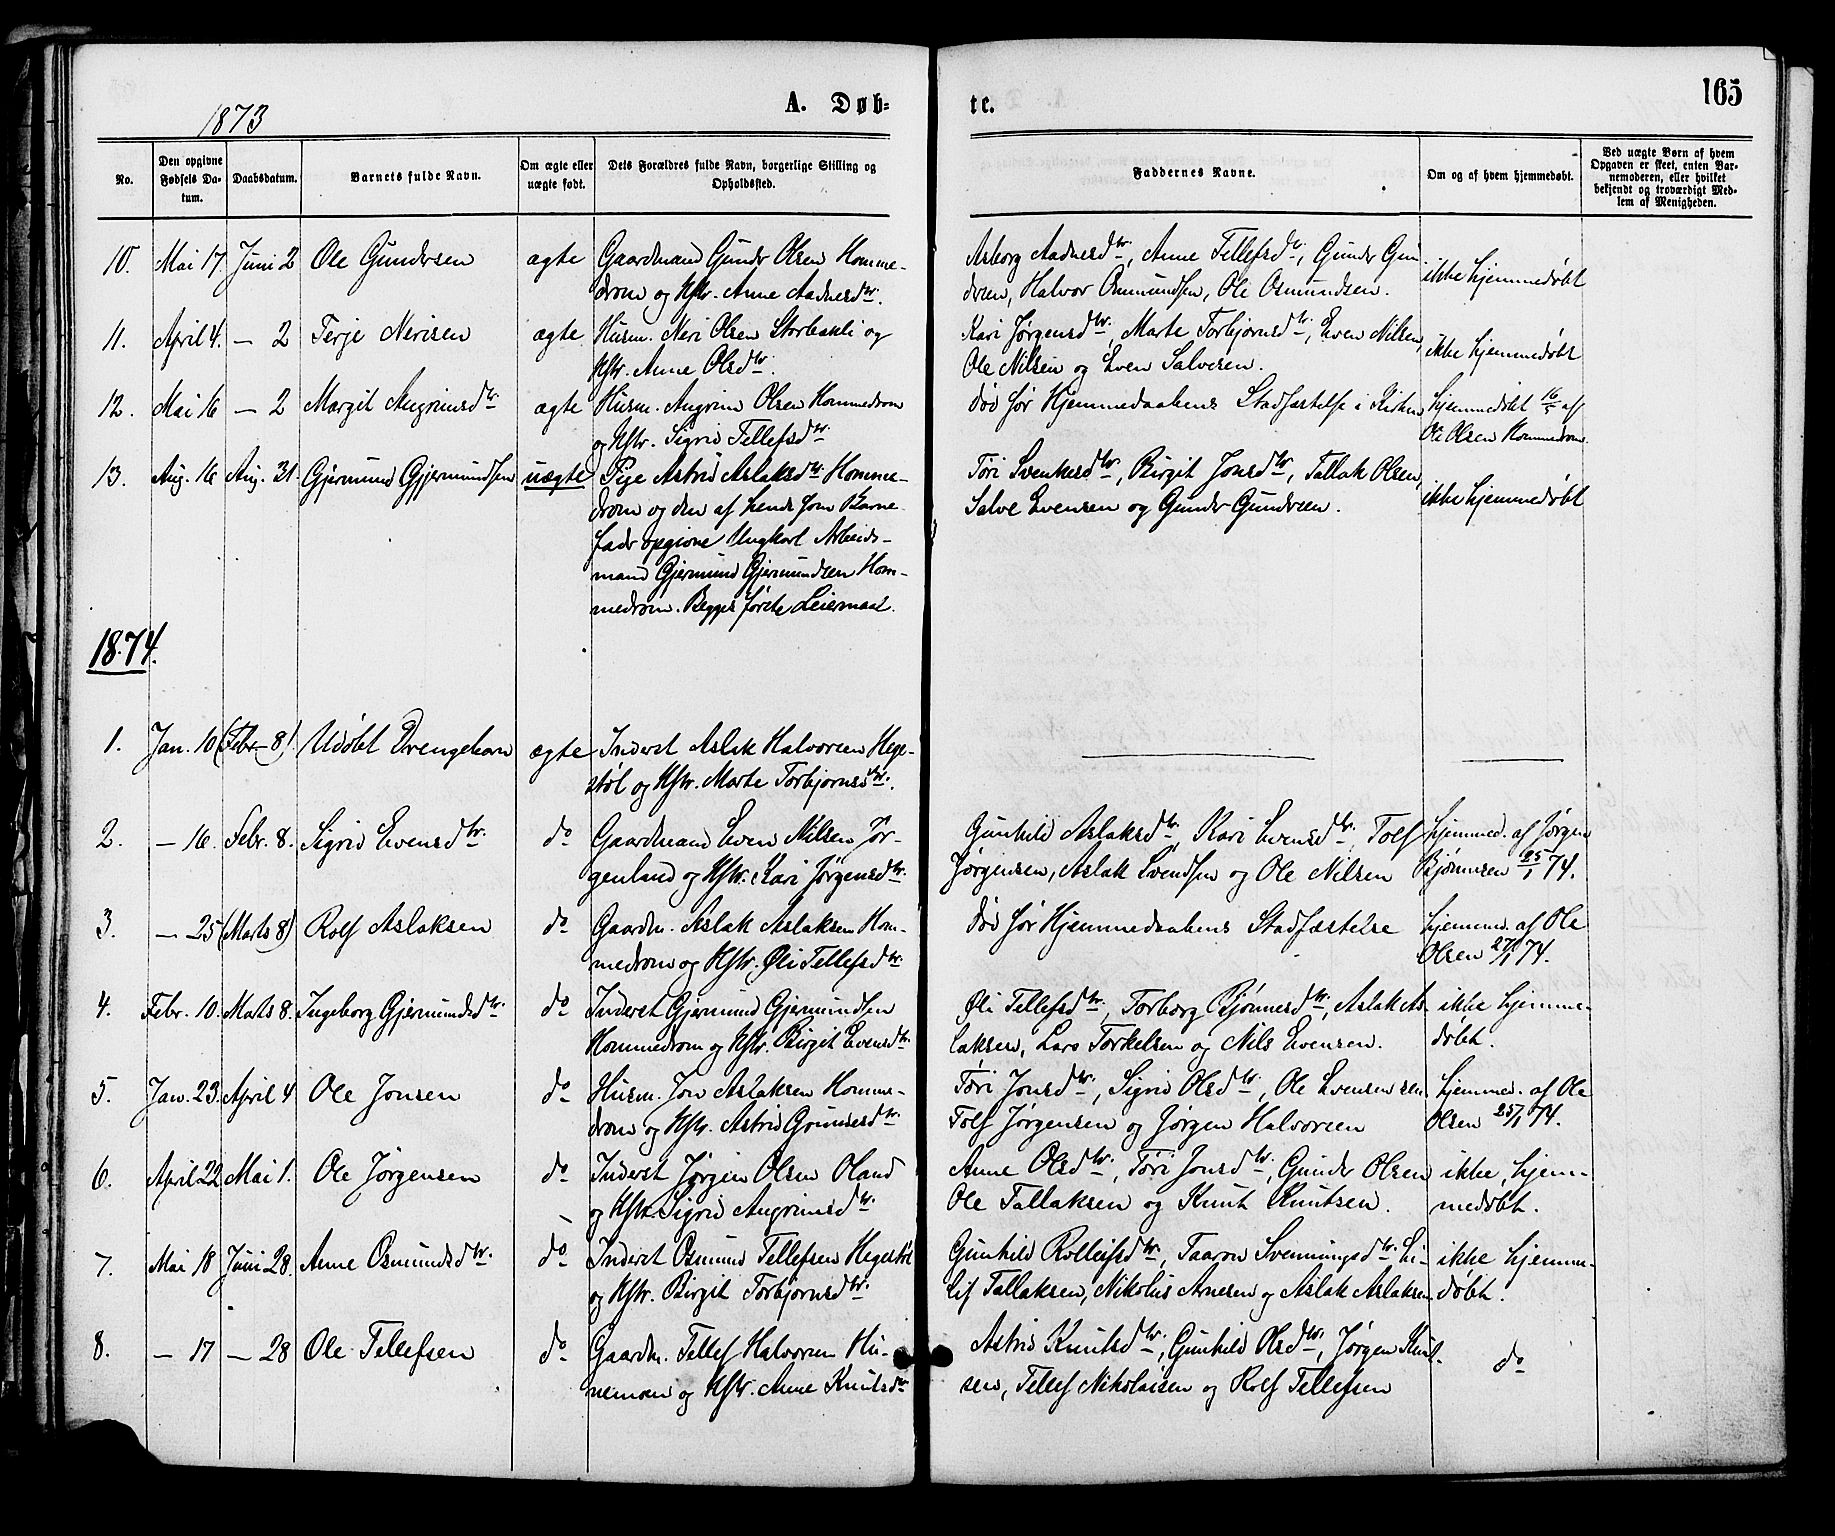 1873
A. Døb-
te.
165
No.
Den opgivne Fødsels Datum.
Daabsdatum.
Barnets fulde Navn.
Om ægte eller uægte født.
Dets Forældres fulde Navn, borgerlige Stilling og Opholdssted.
Faddernes Navne.
Om og af hvem hjemmedøbt.
Ved uægte Børn af hvem Opgaven er skeet, enten Barnemoderen, eller hvilket bekjendt og troværdigt Medlem af Menigheden.
10. Mai 17. Juni 2 Ole Gundersen ægte Gaardmand Gunder Olsen Homme-
drom og Hstr. Anne Aadnesdtr.
Asborg Aadnesdtr, Anne Tellefsdtr, Gunder Gun
dersen, Halvor Osmundsen, Ole Osmundsen.
ikke hjemmedøbt
11. April 4. — 2 Terje Nerisen ægte Husm. Neri Olsen Storbakli og
Hstr. Anne Olsdtr.
Kari Jørgensdtr, Marte Torbjørnsdtr, Even Nilsen,
Ole Nilsen og Even Salvesen.
ikke hjemmedøbt
12. Mai 16 — 2 Margit Augrimsdtr ægte Husm. Augrim Olsen Hommedrom
og Hstr. Sigrid Tellefsdtr
død før Hjemmedaabens Stadfæstelse i Kirken
hjemmedøbt 16/5 af
Ole Olsen Hommedrom.
13. Aug. 16 Aug. 31. Gjermund Gjermundsen uægte Pige Astrid Aslaksdtr Homme-
drom og den af hende som Barne-
fader opgivne Ungkarl Arbeids-
mand Gjermund Gjermundsen Hom-
medrom. Begges første Leiermaal.
Tøri Svenkesdtr, Birgit Jonsdtr, Tallak Olsen,
Salve Evensen og Gunder Gundersen.
ikke hjemmedøbt
1874.
1. Jan. 10 (Febr. 8). Udøbt Drengebarn ægte Inderst Aslak Halvorsen Hege-
støl og Hstr. Marte Torbjørnsdtr.
2. — 16. Febr. 8. Sigrid Evensdtr. do Gaardmand Even Nilsen Jør-
genland og Hstr. Kari Jørgensdtr.
Gunhild Aslaksdtr, Kari Evensdtr, Tolf
Jørgensen, Aslak Svendsen og Ole Nilsen
hjemmed. af Jørgen
Bjørnsen 25/1 74.
3. — 25 (Marts 8) Rolf Aslaksen do Gaardm. Aslak Aslaksen Hom-
medrom og Hstr. Øli Tellefsdtr
død før Hjemmedaabens Stadfæstelse
hjemmed. af Ole
Olsen 27/1 74.
4. Febr. 10. Marts 8. Ingeborg Gjermundsdtr. do Inderst Gjermund Gjermundsen
Hommedrom og Hstr. Birgit Evensdtr.
Øli Tellefsdtr, Torborg Bjørnsdtr, Aslak As-
laksen, Lars Torkelsen og Nils Evensen.
ikke hjemme-
døbt.
5. Jan. 23. April 4 Ole Jonsen do Husm. Jon Aslaksen Homme-
drom og Hstr. Astrid Gundersdtr
Tøri Jonsdtr, Sigrid Olsdtr, Ole Evensen sen.
Tolf Jørgensen og Jørgen Halvorsen
hjemmed. af Ole
Olsen 25/1 74.
6. April 22 Mai 1. Ole Jørgensen do Inderst Jørgen Olsen Oland
og Hstr Sigrid Augrimsdtr.
Anne Olsdtr, Tøri Jonsdtr, Gunder Olsen
Ole Tallaksen og Knut Knutsen.
ikke hjem-
medøbt.
7. Mai 18 Juni 28. Anne Osmundsdtr. do Inderst Osmund Tellefsen Hegestøl
og Hstr. Birgit Torbjørnsdtr.
Gunhild Rolleifsdtr, Taaron Svenningsdtr, Ei-
lif Tallaksen, Nikolus Arnesen og Aslak Aslaksen
ikke hjemme-
døbt.
8. — 17 — 28 Ole Tellefsen do Gaardm. Tellef Halvorsen Hu-
neman og Hstr. Anne Knutsdtr
Astrid Knutsdtr, Gunhild Olsdtr, Jørgen Knut-
sen, Tellef Nikolaisen og Rolf Tellefsen
do